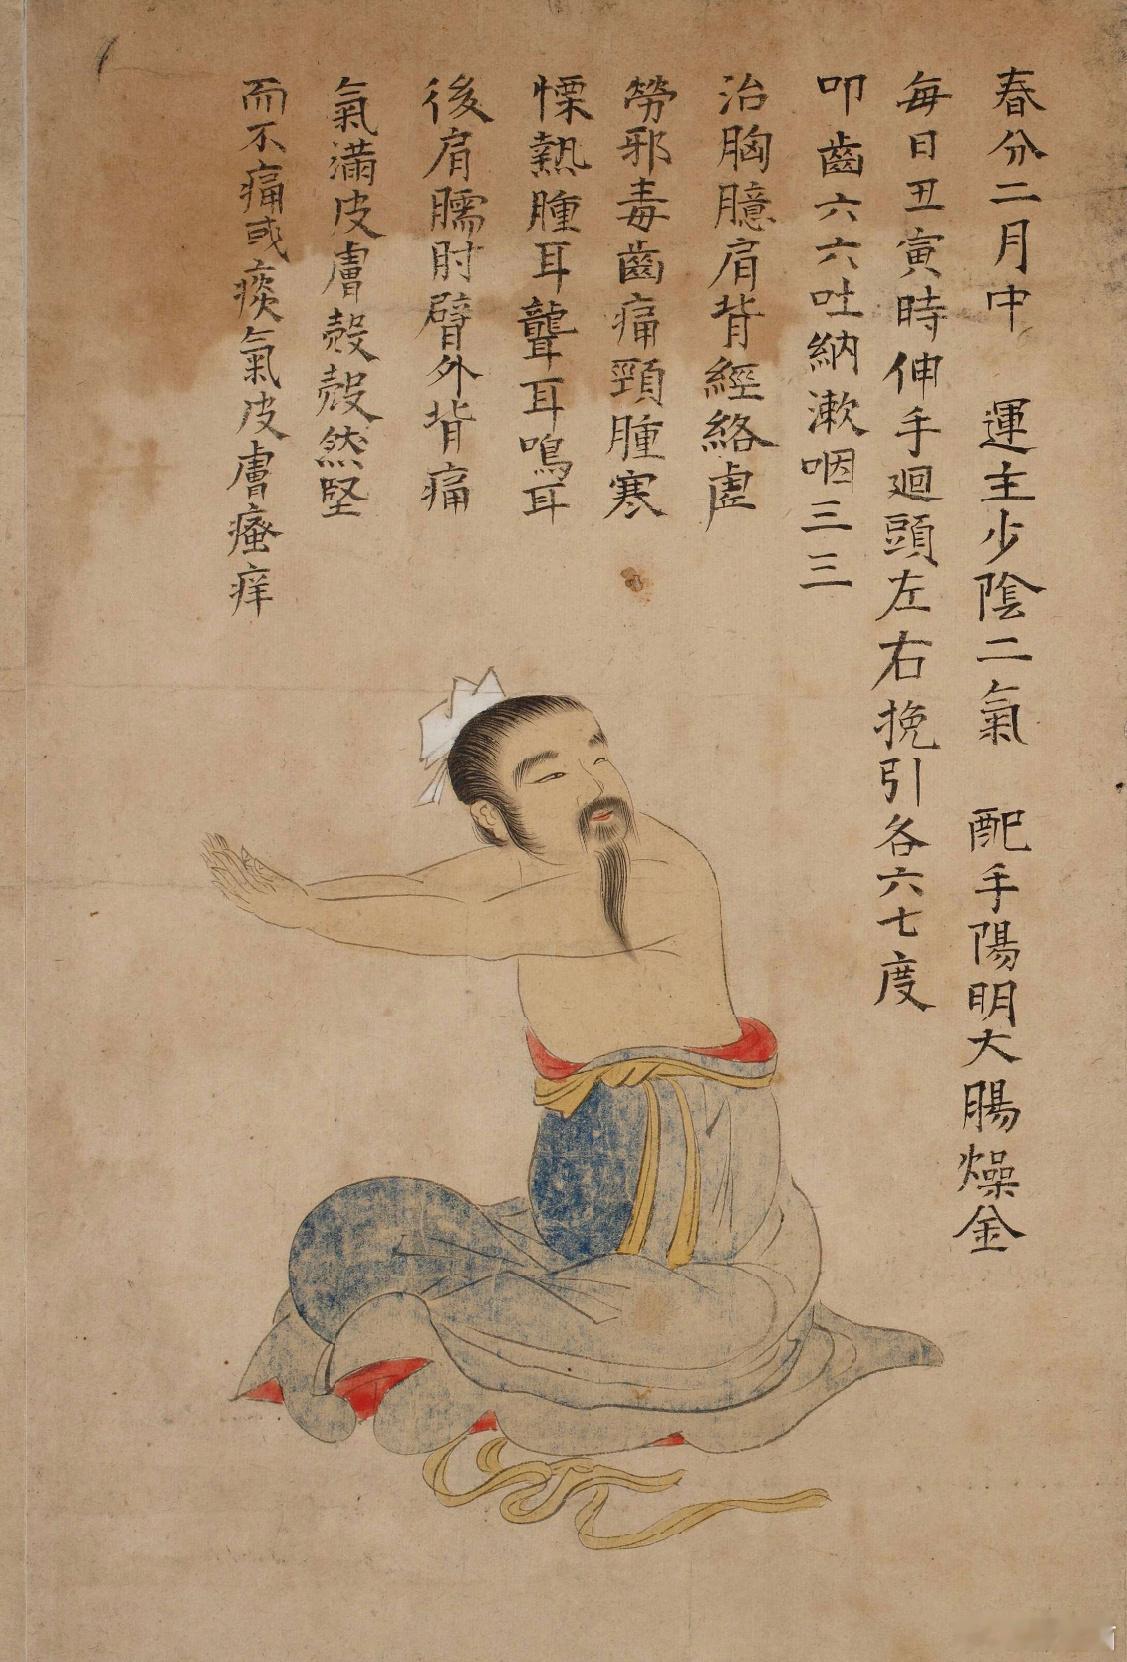 春分二月中　運主少陰二氣　配手陽明大腸燥金
每日丑寅時伸手迴頭左右挽引各六七度
叩齒六六吐納漱咽三三
治胸臆肩背經絡虛
勞邪毒齒痛頸腫寒
慄熱腫耳聾耳鳴耳
後肩臑肘臂外背痛
氣滿皮膚殼殼然堅
而不痛或痰氣皮膚瘙痒